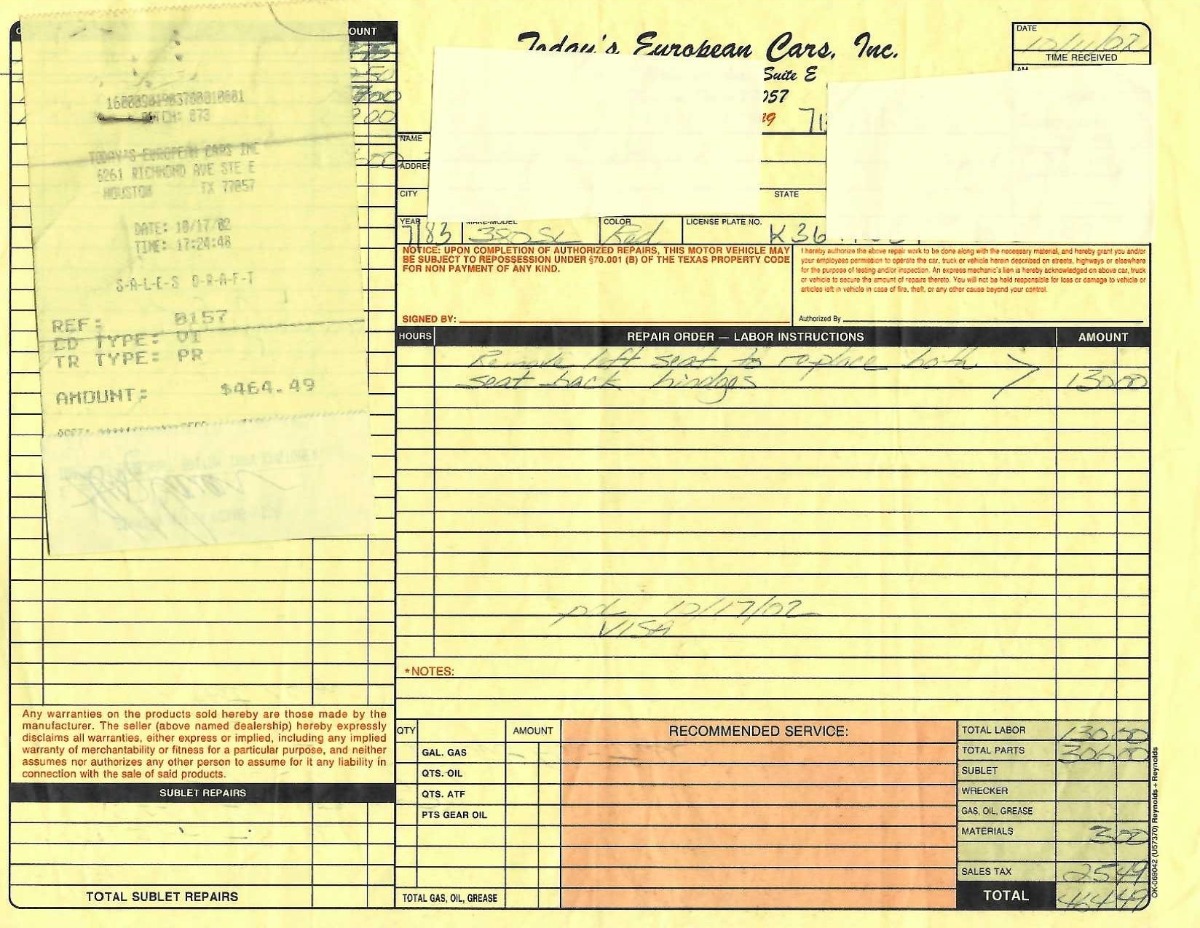 Today's European Cars, Inc.
Suite E
057
DATE
TIME RECEIVED
AM
OUNT
1600090190370001
BATCH: 873
TODAY'S EUROPEAN CARS INC
6261 RICHMOND AVE STE E
HOUSTON TX 77057
DATE: 10/17/02
TIME: 17:24:48
S-A-L-E-S D-R-A-F-T
REF: 0157
CD TYPE: VI
TR TYPE: PR
AMOUNT: $464.49
NAME
ADDRE
CITY
STATE
YEAR
MAKE-MODEL
COLOR
LICENSE PLATE NO.
83 380SL Red K36
NOTICE: UPON COMPLETION OF AUTHORIZED REPAIRS, THIS MOTOR VEHICLE MAY
BE SUBJECT TO REPOSSESSION UNDER §70.001 (B) OF THE TEXAS PROPERTY CODE
FOR NON PAYMENT OF ANY KIND.
SIGNED BY:
I hereby authorize the above repair work to be done along with the necessary material, and hereby grant you and/or
your employees permission to operate the car, truck or vehicle herein described on streets, highways or elsewhere
for the purpose of testing and/or inspection. An express mechanic's lien is hereby acknowledged on above car, truck
or vehicle to secure the amount of repairs thereto. You will not be held responsible for loss or damage to vehicle or
articles left in vehicle in case of fire, theft, or any other cause beyond your control.
Authorized By
HOURS
REPAIR ORDER — LABOR INSTRUCTIONS
AMOUNT
Remove left seat to replace both
seat back hindges 130 00
pd 10/17/02
VISA
*NOTES:
Any warranties on the products sold hereby are those made by the
manufacturer. The seller (above named dealership) hereby expressly
disclaims all warranties, either express or implied, including any implied
warranty of merchantability or fitness for a particular purpose, and neither
assumes nor authorizes any other person to assume for it any liability in
connection with the sale of said products.
SUBLET REPAIRS
TOTAL SUBLET REPAIRS
QTY
AMOUNT
GAL. GAS
QTS. OIL
QTS. ATF
PTS GEAR OIL
TOTAL GAS, OIL, GREASE
RECOMMENDED SERVICE:
TOTAL LABOR 130 00
TOTAL PARTS 306 00
SUBLET
WRECKER
GAS, OIL, GREASE
MATERIALS 3 00
SALES TAX 25 49
TOTAL 464 49
OK-069042 (U57370) Reynolds + Reynolds